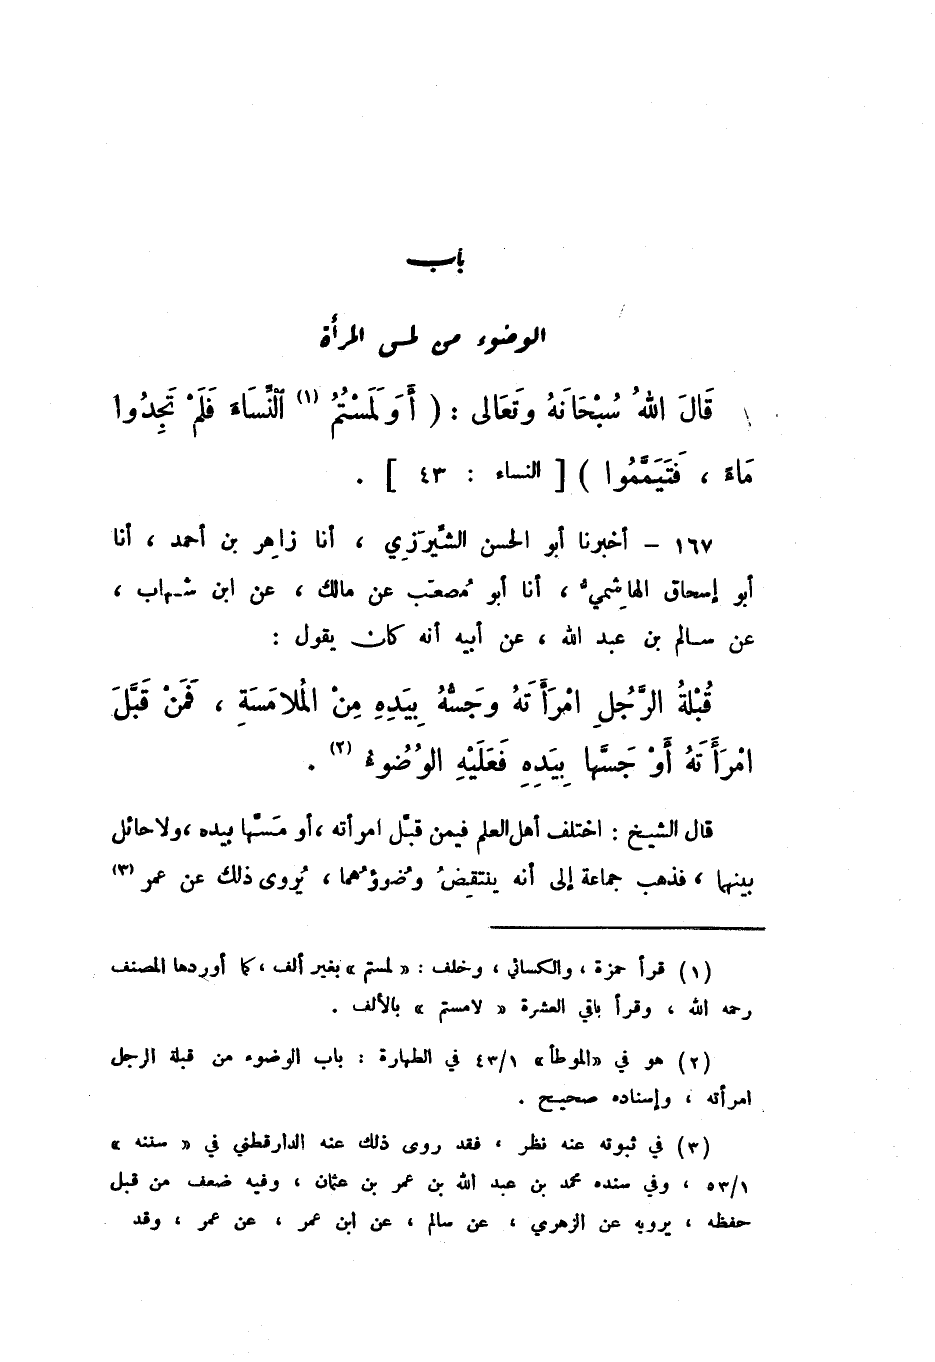 باب
الوضوء من لمس المرأة
قَالَ اللهُ سُبْحَانَهُ وتَعَالى : ( أَوَ لَمَسْتُمُ (١) ٱلنِّسَاءَ فَلَمْ تَجِدُوا
مَاءً ، فَتَيَمَّمُوا ) [ النساء : ٤٣ ] .
١٦٧ – أخبرنا أبو الحسن الشِّيرَزِي ، أنا زاهِر بن أحمد ، أنا
أبو إسحاق الهاشِميُّ ، أنا أبو مُصعَب عن مالك ، عن ابن شهاب ،
عن سالم بن عبد الله ، عن أبيه أنه كان يقول :
قُبْلَةُ الرَّجُلِ امْرَأَتَهُ وجَسُّهُ بِيَدِهِ مِنْ الْمُلامَسَةِ ، فَمَنْ قَبَّلَ
امْرَأَتَهُ أَوْ جَسَّها بِيَدِهِ فَعَلَيْهِ الوُضُوءُ (٢) .
قال الشيخ : اختلف أهل العلم فيمن قبَّل امرأته ، أو مَسَّها بيده ، ولا حائل
بينها ، فذهب جماعة إلى أنه ينتقِضُ وضُوؤُهُما ، يُروى ذلك عن عمر (٣)
(١) قرأ حمزة ، والكسائي ، وخلف : « لمستم » بغير ألف ، كما أوردها المصنف
رحمه الله ، وقرأ باقي العشرة « لامستم » بالألف .
(٢) هو في «الموطأ» ٤٣/١ في الطهارة : باب الوضوء من قبلة الرجل
امرأته ، وإسناده صحيح .
(٣) في ثبوته عنه نظر ، فقد روى ذلك عنه الدارقطني في « سننه »
٥٣/١ ، وفي سنده محمد بن عبد الله بن عمر بن عثمان ، وفيه ضعف من قبل
حفظه ، يرويه عن الزهري ، عن سالم ، عن ابن عمر ، عن عمر ، وقد